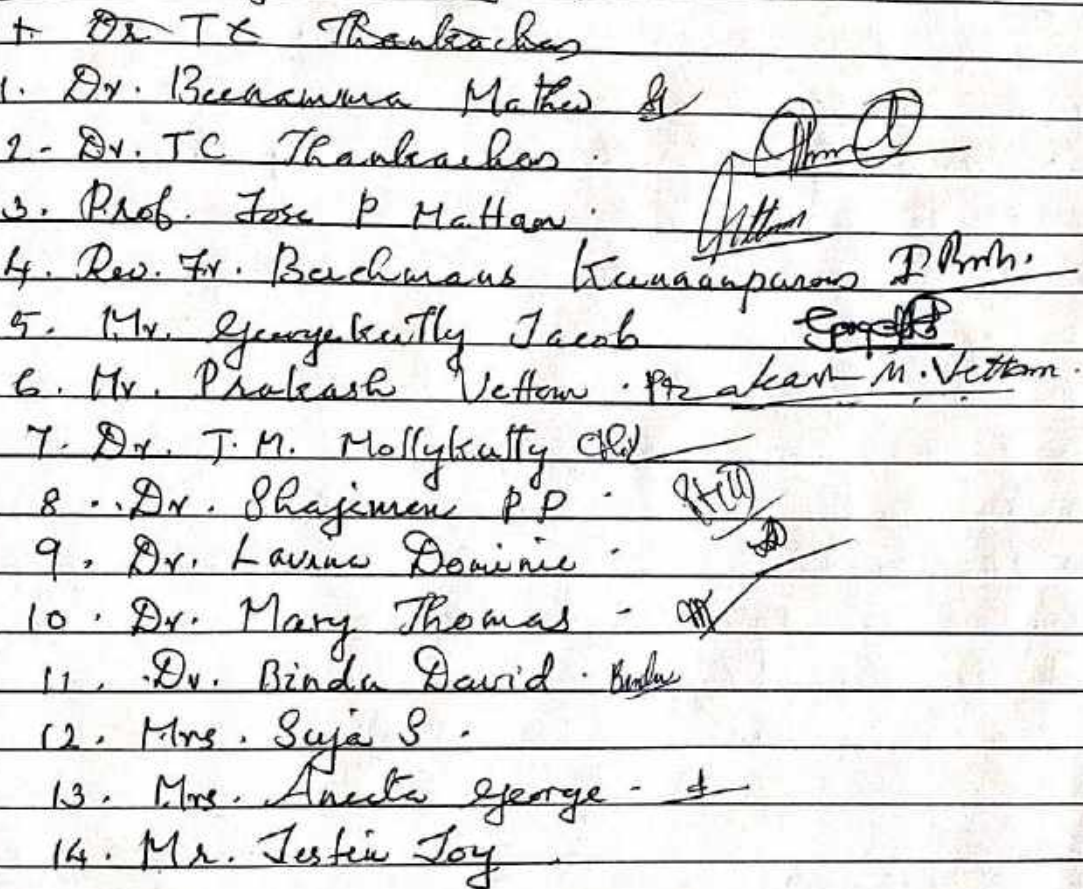 Dr T C Thankachan
1. Dr. Beenamma Mathew
2. Dr. TC Thankachan.
3. Prof. Jose P Mattam.
4. Rev. Fr. Berchmans Kunnanpuram
5. Mr. Georgekutty Jacob
6. Mr. Prakash Vettom. Prakash M. Vettom.
7. Dr. T. M. Mollykutty
8. Dr. Shajimon PP
9. Dr. Lavina Dominic
10. Dr. Mary Thomas -
11. Dr. Bindu David. Bindu
12. Mrs. Suja S.
13. Mrs. Aneeta George -
14. Mr. Jestin Joy